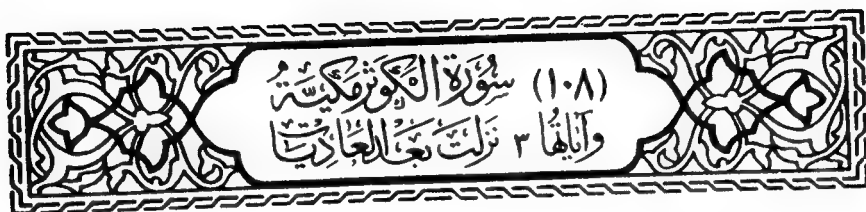 (١٠٨) سُورَةُ الْكَوْثَرِ مَكِّيَّةٌ
وَآيَاتُهَا ٣ نَزَلَتْ بَعْدَ الْعَادِيَاتِ